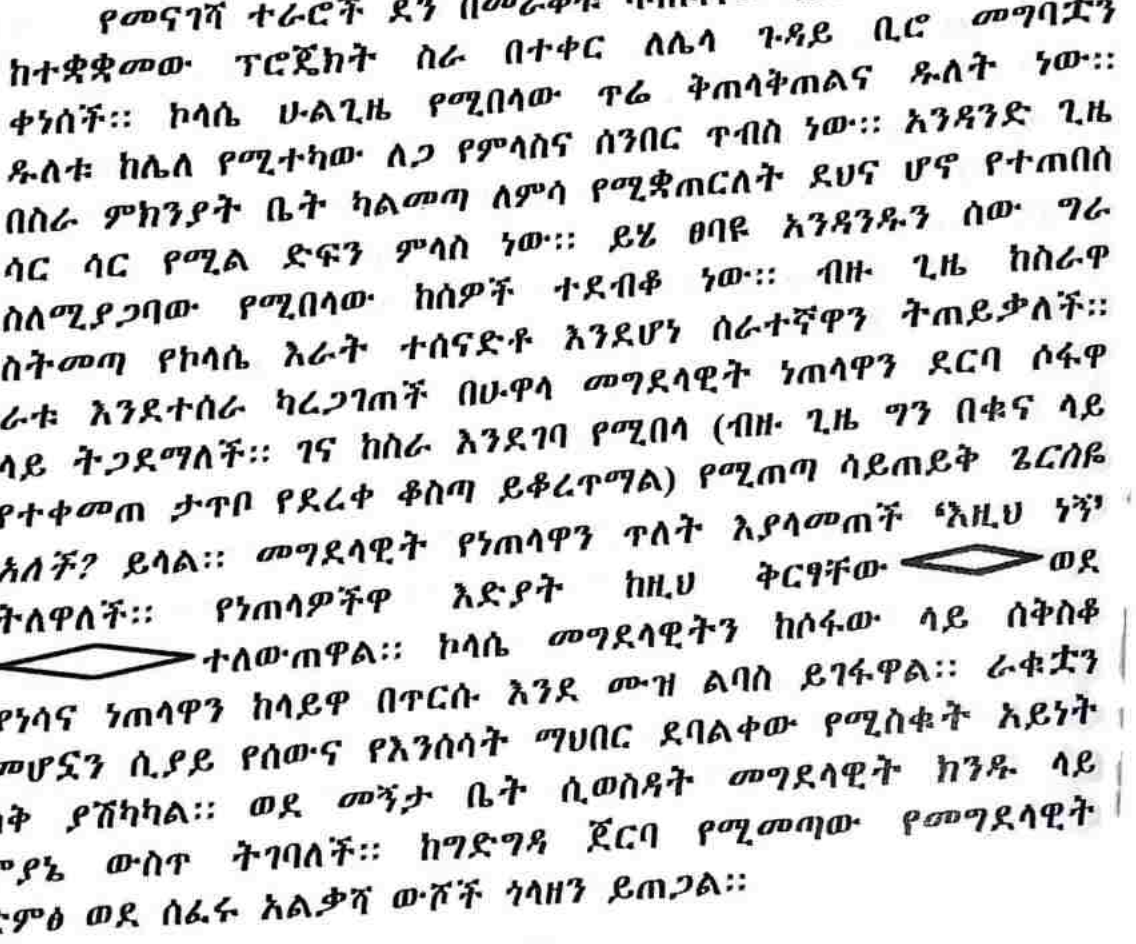 የመናገሻ ተራሮች ደን
ከተቋቋመው ፕሮጄክት ስራ በተቀር ለሌላ ጉዳይ ቢሮ መግባቷን
ቀነሰች። ኮላሴ ሁልጊዜ የሚበላው ጥሬ ቅጠላቅጠልና ዱለት ነው።
ዱለቱ ከሌለ የሚተካው ለጋ የምላስና ሰንበር ጥብስ ነው። አንዳንድ ጊዜ
በስራ ምክንያት ቤት ካልመጣ ለምሳ የሚቋጠርለት ደህና ሆኖ የተጠበሰ
ሳር ሳር የሚል ድፍን ምላስ ነው። ይሄ ፀባዩ አንዳንዱን ሰው ግራ
ስለሚያጋባው የሚበላው ከሰዎች ተደብቆ ነው። ብዙ ጊዜ ከስራዋ
ስትመጣ የኮላሴ እራት ተሰናድቶ እንደሆነ ሰራተኛዋን ትጠይቃለች።
ራቱ እንደተሰራ ካረጋገጠች በሁዋላ መግደላዊት ነጠላዋን ደርባ ሶፋዋ
ላይ ትጋደማለች። ገና ከስራ እንደገባ የሚበላ (ብዙ ጊዜ ግን በቁና ላይ
የተቀመጠ ታጥቦ የደረቀ ቆስጣ ይቆረጥማል) የሚጠጣ ሳይጠይቅ ጌርሰዬ
አለች? ይላል። መግደላዊት የነጠላዋን ጥለት እያላመጠች ‘እዚህ ነኝ’
ትለዋለች። የነጠላዎችዋ እድያት ከዚህ ቅርፃቸው ወደ
ተለውጠዋል። ኮላሴ መግደላዊትን ከሶፋው ላይ ሰቅስቆ
የነሳና ነጠላዋን ከላይዋ በጥርሱ እንደ ሙዝ ልባስ ይገፋዋል። ራቁቷን
መሆኗን ሲያይ የሰውና የእንሰሳት ማህበር ደባልቀው የሚስቁት አይነት
ሳቅ ያሽካካል። ወደ መኝታ ቤት ሲወስዳት መግደላዊት ክንዱ ላይ
ውስጥ ትገባለች። ከግድግዳ ጀርባ የሚመጣው የመግደላዊት
ድምፅ ወደ ሰፈሩ አልቃሻ ውሾች ጎላዘን ይጠጋል።